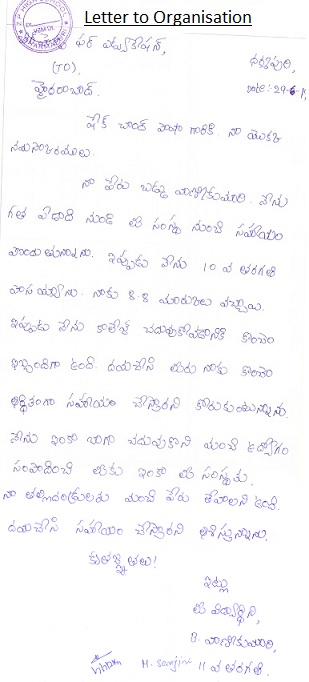 Letter to Organisation
ఫర్ ఎడ్యుకేషన్,
ధర్మపురి,
(TO),
Date:- 29-6-11
హైదరాబాద్.
షేక్ చాంద్ పాషా గారికి. నా యొక్క
నమస్కారములు.
నా పేరు బడ్కు వాణికుమారి. నేను
గత ఏడాది నుండి మీ సంస్థ నుంచి సహాయం
పొందుతున్నాను. ఇప్పుడు నేను 10 వ తరగతి
పాస్ అయ్యాను. నాకు 8.8 మార్కులు వచ్చాయి.
ఇప్పుడు నేను కాలేజీ చదువుకోవడానికి కొంచెం
ఇబ్బందిగా ఉంది. దయచేసి మీరు నాకు కొంచెం
ఆర్థికంగా సహాయం చేస్తారని కోరుకుంటున్నాను.
నేను ఇంకా బాగా చదువుకొని మంచి ఉద్యోగం
సంపాదించి మీకు ఇంకా మీ సంస్థకు
నా తల్లిదండ్రులకు మంచి పేరు తేవాలని ఉంది.
దయచేసి సహాయం చేస్తారని ఆశిస్తున్నాను.
కృతజ్ఞతలు!
ఇట్లు
మీ విద్యార్థిని,
B. వాణికుమారి,
11 వ తరగతి.